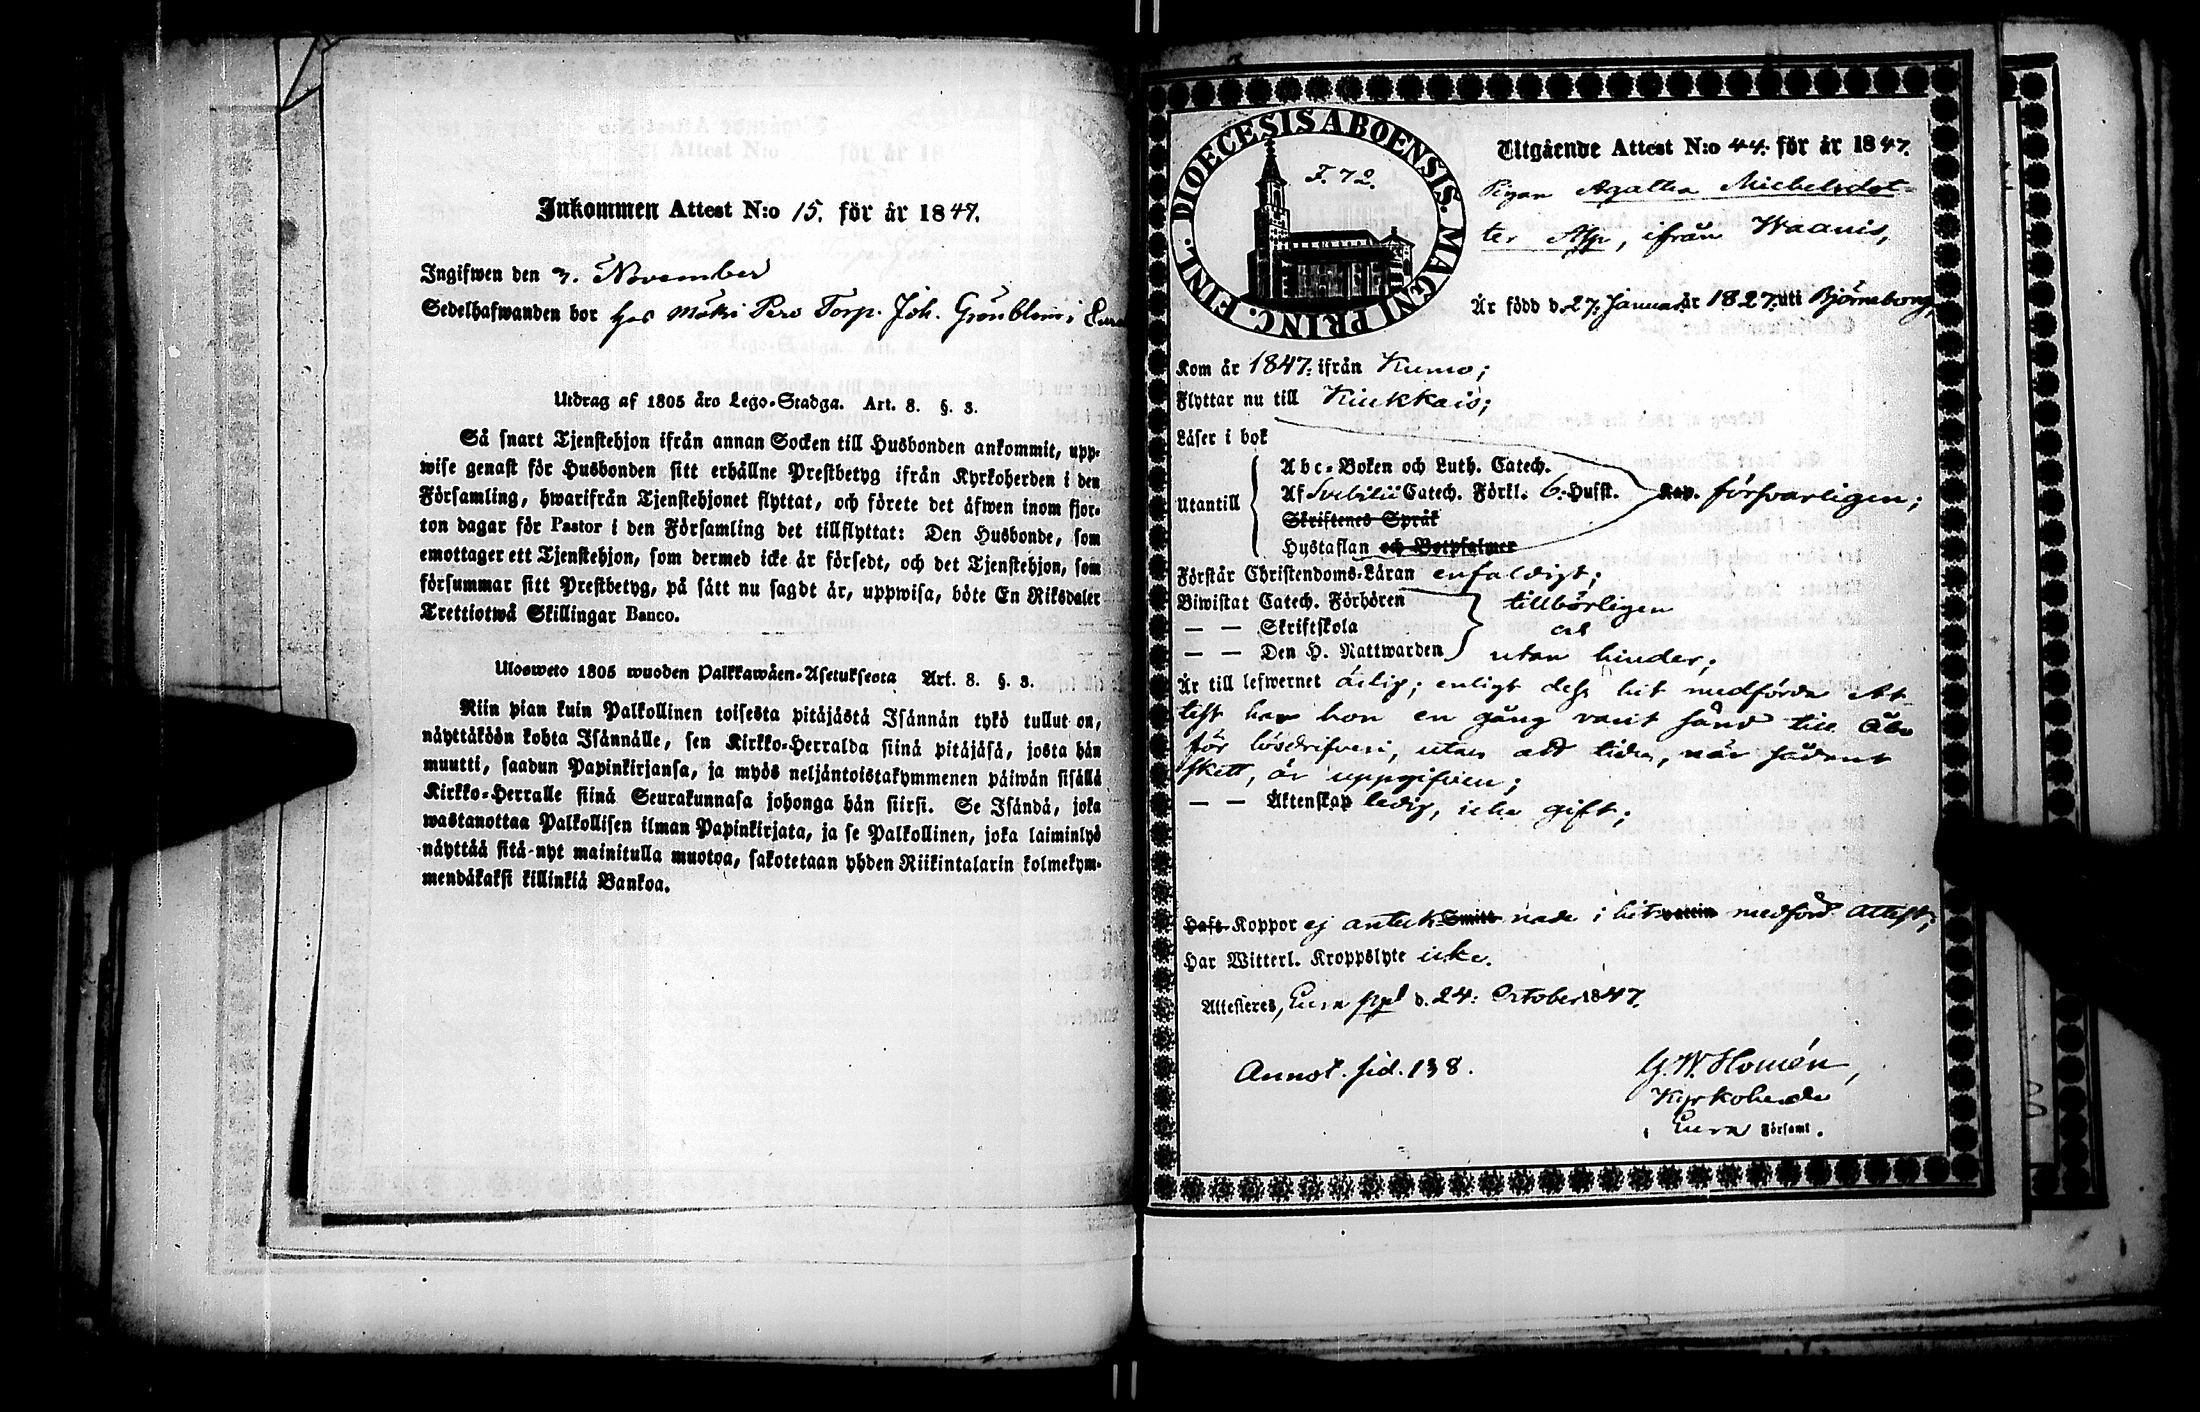 Inkommen Attest N:o 15. för år 1847.
Ingifwen den 3. November
Sedelhafwanden bor hos Mäki Pero Torp. Joh. Grönblom i Eura
Utdrag af 1805 års Lego-Stadga. Art. 8. §. 3.
Så snart Tjenstehjon ifrån annan Socken till Husbonden ankommit, upp-
wise genast för Husbonden sitt erhållne Prestbetyg ifrån Kyrkoherden i den
Församling, hwarifrån Tjenstehjonet flyttat, och förete det äfwen inom fjor-
ton dagar för Pastor i den Församling det tillflyttat: Den Husbonde, som
emottager ett Tjenstehjon, som dermed icke är försedt, och det Tjenstehjon, som
försummar sitt Prestbetyg, på sätt nu sagdt är, uppwisa, böte En Riksdaler
Trettiotwå Skillingar Banco.
Ulosweto 1805 wuoden Palkkawäen-Asetuksesta Art. 8. §. 3.
Niin pian kuin Palkollinen toisesta pitäjästä Isännän tykö tullut on,
näyttäköön kohta Isännälle, sen Kirkko-Herralda siinä pitäjäsä, josta hän
muutti, saadun Papinkirjansa, ja myös neljäntoistakymmenen päiwän sisällä
Kirkko-Herralle siinä Seurakunnasa johonga hän siirsi. Se Isändä, joka
wastanottaa Palkollisen ilman Papinkirjata, ja se Palkollinen, joka laiminlyö
näyttää sitä nyt mainitulla muotoa, sakotetaan yhden Riikintalarin kolmekym-
mendäkaksi killinkiä Bankoa.
DIOECESIS ABOENSIS. MAGNI PRINC. FINL.
F. 72.
Utgående Attest N:o 44. för år 1847.
Pigan Agatha Michelsdot-
ter Alp, ifrån Waanis,
Är född d. 27. Januari år 1827. uti Björneborg,
Kom år 1847. ifrån Kumo;
Flyttar nu till Kiukkais;
Läser i bok
Utantill
Abc-Boken och Luth. Catech.
Af Svebilii Catech. Förkl. 6. Hufst. Kap. försvarligen;
Skriftenes Språk
Hustaflan och Botpsalmer
Förstår Christendoms-Läran enfaldigt;
Biwistat Catech. Förhören tillbörligen
— — Skriftskola och
— — Den H. Nattwarden utan hinder;
Är till lefwernet ärlig; enligt dess hit medförda At-
test har hon en gång varit sänd till Åbo
för lösdrifveri, utan att tiden, när sådant
skett, är uppgifven;
— — Äktenskap ledig, icke gift;
Haft Koppor ej anteck Smitt nade i hit vaccin medförd Attest;
Har Witterl. Kroppslyte icke.
Attesteres, Eura d. 24. October 1847.
Annot. sid. 138.
G. W. Homén,
Kyrkoherde
i Eura Församl.